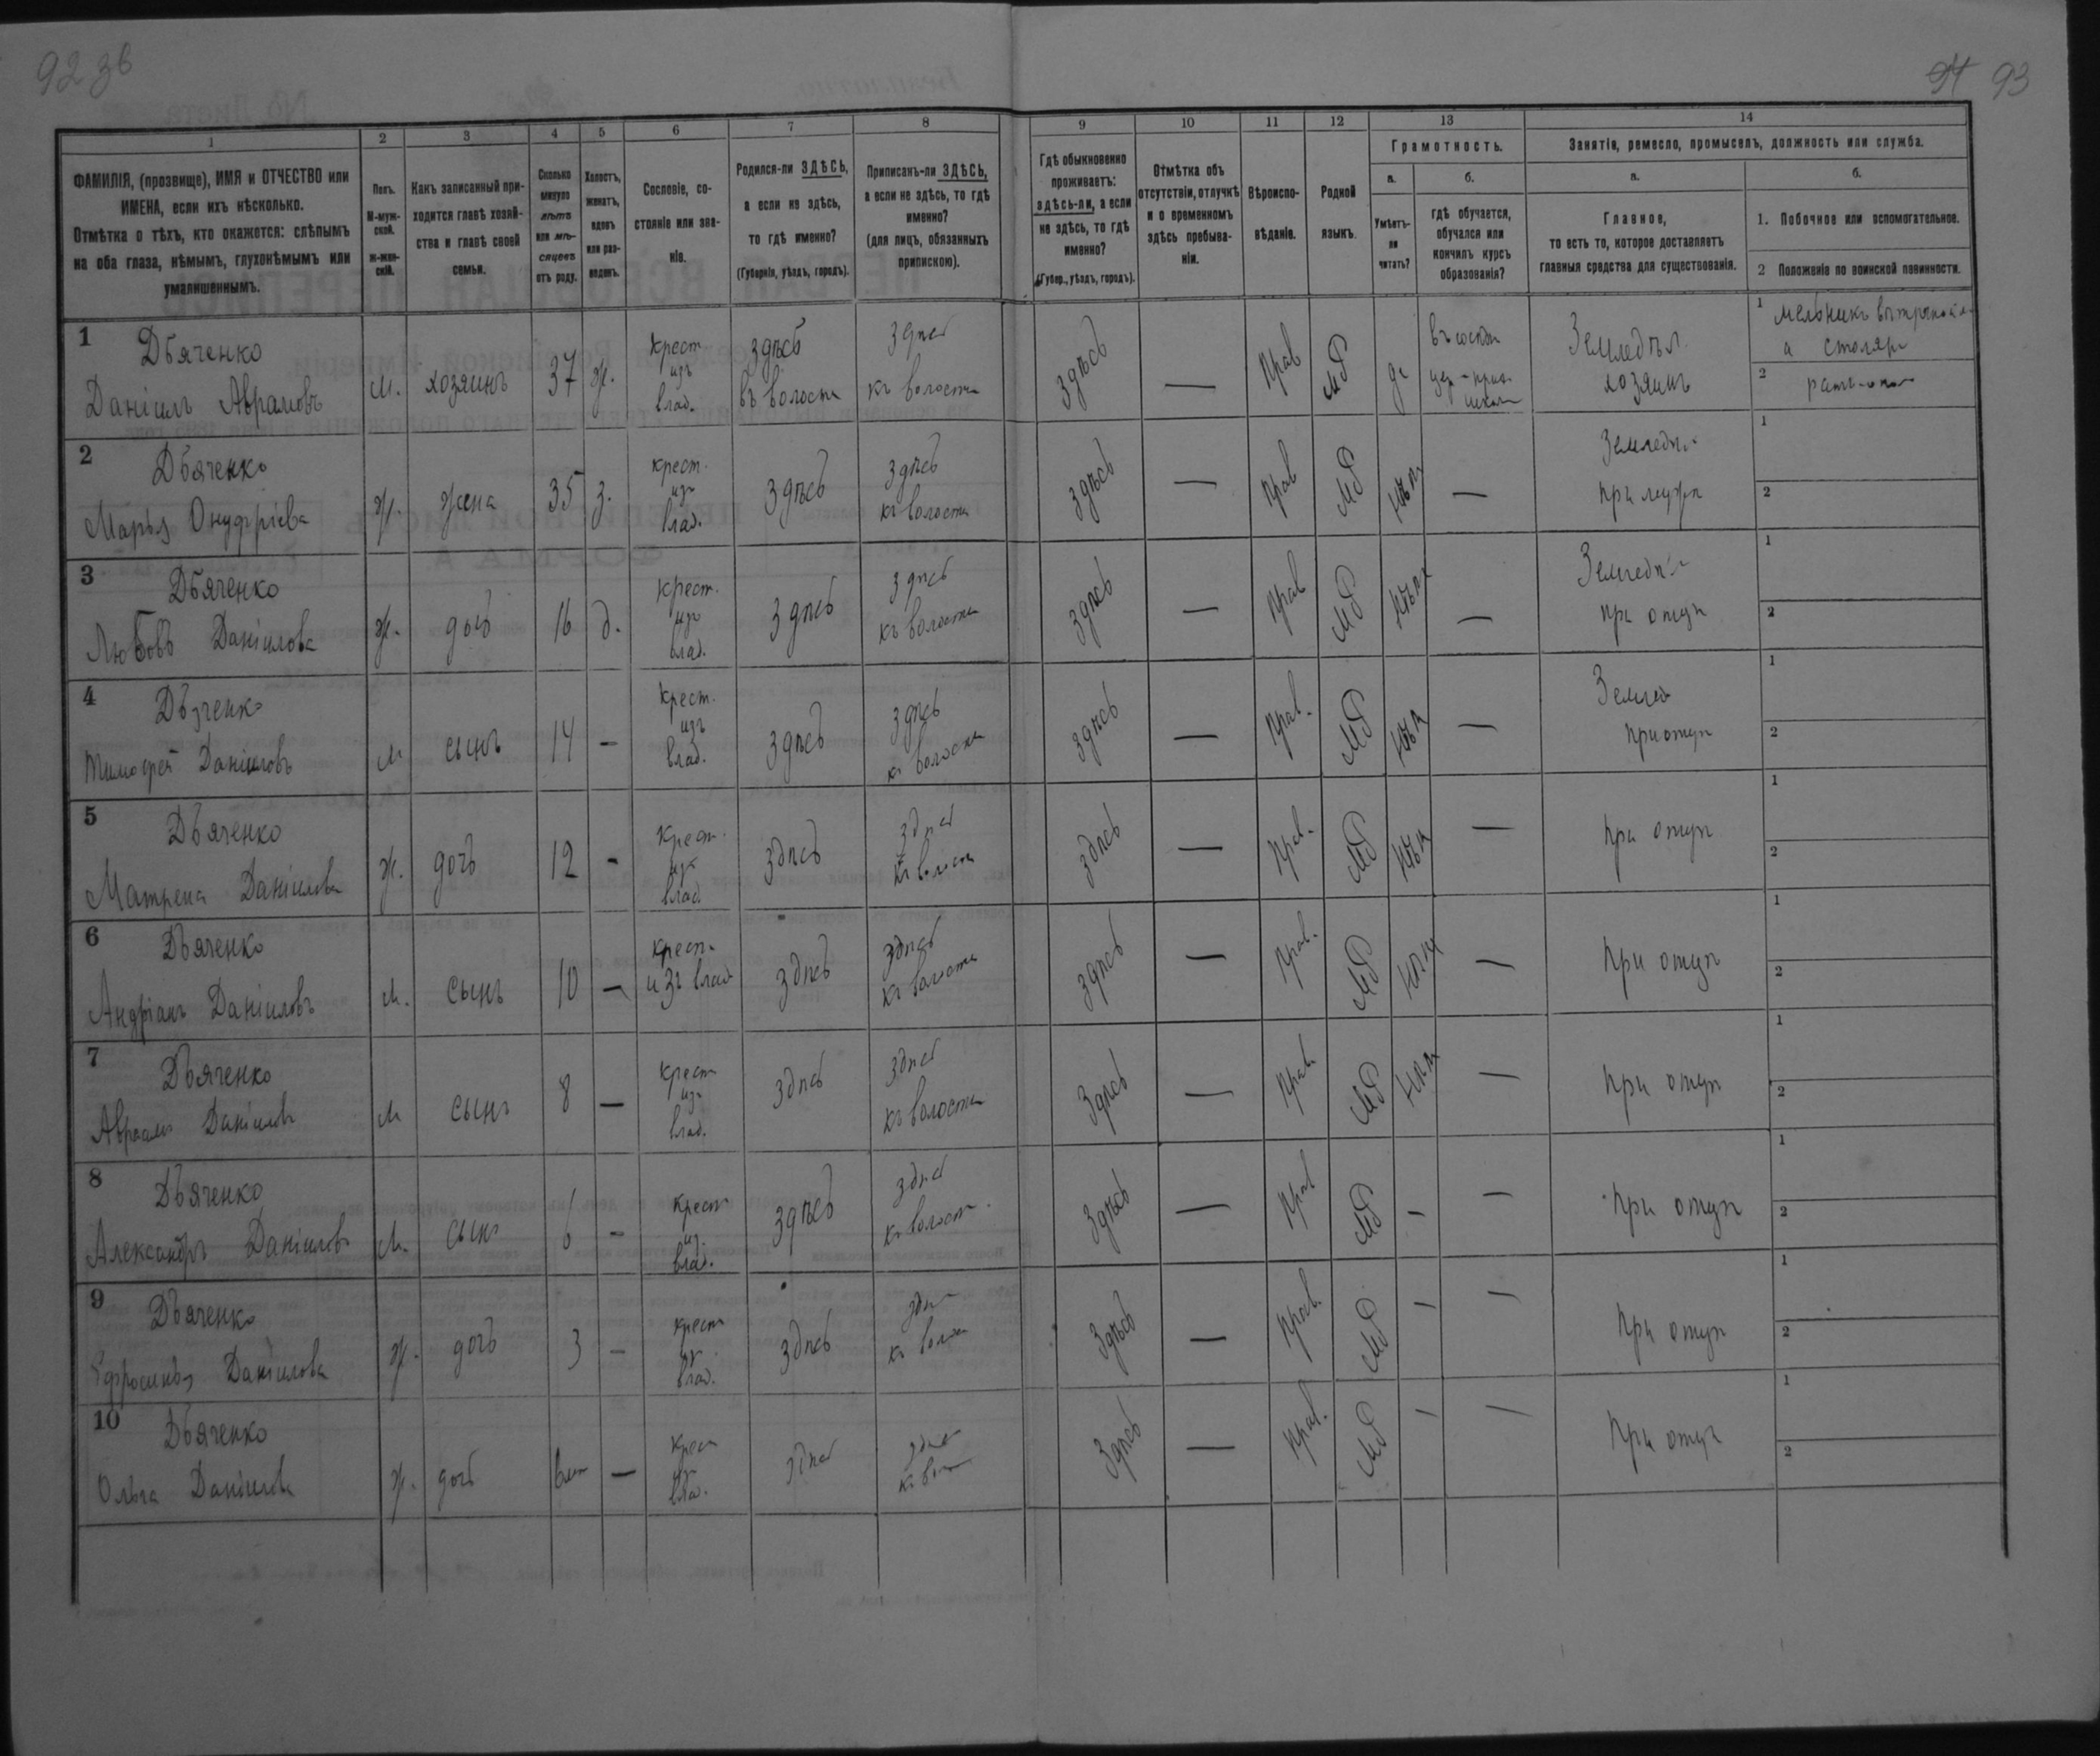 92 зв
94 93
1
2
3
4
5
6
7
8
9
10
11
12
13
14
ФАМИЛІЯ, (прозвище), ИМЯ и ОТЧЕСТВО или
ИМЕНА, если ихъ нѣсколько.
Отмѣтка о тѣхъ, кто окажется: слѣпымъ
на оба глаза, нѣмымъ, глухонѣмымъ или
умалишеннымъ.
Полъ.
М-муж-
ской.
ж-жен-
скій.
Какъ записанный при-
ходится главѣ хозяй-
ства и главѣ своей
семьи.
Сколько
минуло
лѣтъ
или мѣ-
сяцевъ
отъ роду.
Холостъ,
женатъ,
вдовъ
или раз-
веденъ.
Сословіе, со-
стояніе или зва-
ніе.
Родился-ли ЗДѢСЬ,
а если не здѣсь,
то гдѣ именно?
(Губернія, уѣздъ, городъ).
Приписанъ-ли ЗДѢСЬ,
а если не здѣсь, то гдѣ
именно?
(для лицъ, обязанныхъ
припискою).
Гдѣ обыкновенно
проживаетъ:
здѣсь-ли, а если
не здѣсь, то гдѣ
именно?
(Губер., уѣздъ, городъ).
Отмѣтка объ
отсутствіи, отлучкѣ
и о временномъ
здѣсь пребыва-
ніи.
Вѣроиспо-
вѣданіе.
Родной
языкъ.
Грамотность.
а.
Умѣетъ-
ли
читать?
б.
гдѣ обучается,
обучался или
кончилъ курсъ
образованія?
Занятія, ремесло, промыселъ, должность или служба.
а.
Главное,
то есть то, которое доставляетъ
главныя средства для существованія.
б.
1. Побочное или вспомогательное.
2 Положеніе по воинской повинности.
1
Дьяченко
Даніилъ Аврамовъ
м.
хозяинъ
37
ж.
крест
изъ
влад.
здѣсь
въ волости
здѣсь
къ волости
здѣсь
—
Прав
МР
да
Земледѣл.
хозяинъ
1
мельникъ
а столяръ
2
2
Дьяченко
Марья Онуфріева
ж.
жена
35
з.
крест.
изъ
влад.
здѣсь
здѣсь
къ волости
здѣсь
—
Прав
МР
нѣтъ
—
Земледѣл
при мужѣ
1
2
3
Дьяченко
Любовь Даніилова
ж.
дочь
16
д.
крест.
изъ
влад.
здѣсь
здѣсь
къ волости
здѣсь
—
Прав
МР
нѣтъ
—
Земледѣл
при отцѣ
1
2
4
Дьяченко
Тимофей Даніиловъ
м
сынъ
14
—
крест.
изъ
влад.
здѣсь
здѣсь
къ волости
здѣсь
—
Прав.
МР
нѣтъ
—
Землед
при отцѣ
1
2
5
Дьяченко
Матрена Даніилова
ж.
дочь
12
-
крест.
изъ
влад
здѣсь
здѣсь
къ волости
здѣсь
—
Прав.
МР
нѣтъ
—
при отцѣ
1
2
6
Дьяченко
Андріанъ Даніиловъ
м.
сынъ
10
—
крест.
изъ влад
здѣсь
здѣсь
къ волости
здѣсь
—
Прав.
МР
нѣтъ
—
при отцѣ
1
2
7
Дьяченко
Авраамъ Даніиловъ
м
сынъ
8
—
крест
изъ
влад.
здѣсь
здѣсь
къ волости
здѣсь
—
Прав.
МР
нѣтъ
—
при отцѣ
1
2
8
Дьяченко
Александръ Даніиловъ
м.
сынъ
6
-
крест
из.
влад.
здѣсь
здѣсь
къ волост.
здѣсь
—
Прав
МР
-
—
при отцѣ
1
2
9
Дьяченко
Ефросинья Даніилова
ж.
дочь
3
—
крест
из.
влад.
здѣсь
здѣсь
къ волос
здѣсь
—
Прав.
МР
-
—
при отцѣ
1
2
10
Дьяченко
Ольга Даніилова
ж.
дочь
—
крест
изъ
влад.
здѣсь
здѣсь
здѣсь
—
Прав.
МР
-
—
при отцѣ
1
2